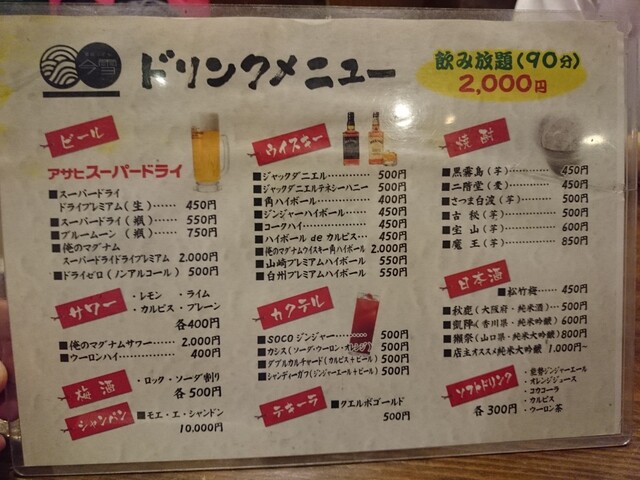 今雪
ドリンクメニュー
飲み放題(90分)
2,000円
ビール
アサヒスーパードライ
■スーパードライ
ドライプレミアム(生)……450円
■スーパードライ(瓶)……550円
■ブルームーン(瓶)……750円
■俺のマグナム
スーパードライドライプレミアム 2.000円
■ドライゼロ(ノンアルコール) 500円
サワー
・レモン ・ライム
・カルピス・プレーン
各400円
■俺のマグナムサワー……2.000円
■ウーロンハイ……400円
梅酒
・ロック・ソーダ割り
各500円
シャンパン
■モエ・エ・シャンドン
10.000円
ウイスキー
■ジャックダニエル……500円
■ジャックダニエルテネシーハニー…500円
■角ハイボール……400円
■ジンジャーハイボール……450円
■コークハイ……450円
■ハイボール de カルピス…450円
■俺のマグナムウイスキー角ハイボール 2.000円
■山崎プレミアムハイボール 550円
■白州プレミアムハイボール 550円
カクテル
■SOCO ジンジャー……500円
■カシス(ソーダ・ウーロン・オレンジ) 500円
■ダブルカルチャード(カルピス+ビール) 500円
■シャンディーガフ(ジンジャーエール+ビール) 500円
テキーラ
■クエルボゴールド
500円
焼酎
■黒霧島(芋)……450円
■二階堂(麦)……450円
■さつま白波(芋)……500円
■吉 (芋)……500円
■宝山(芋)……600円
■魔王(芋)……850円
日本酒
■松竹梅……450円
■秋鹿(大阪府・純米酒)……500円
■凱陣(香川県・純米吟醸)600円
■獺祭(山口県・純米吟醸)800円
■店主オススメ(純米大吟醸) 1.000円~
ソフトドリンク
各300円
・能勢ジンジャーエール
・オレンジジュース
・コカコーラ
・カルピス
・ウーロン茶